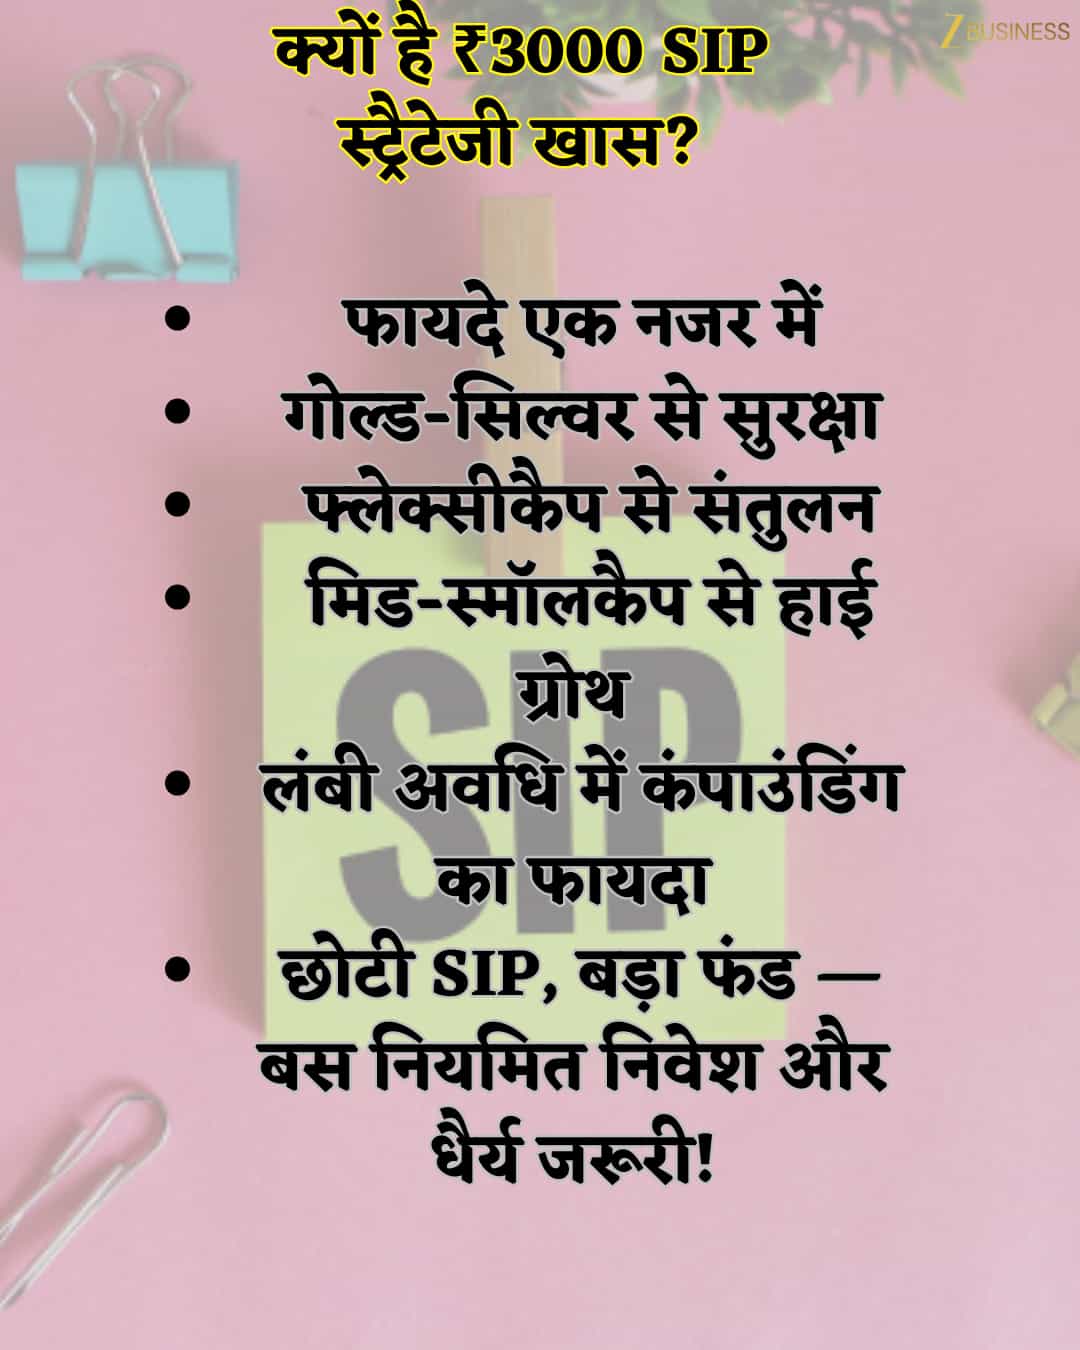 क्यों है ₹3000 SIP
स्ट्रैटेजी खास?
Z BUSINESS
• फायदे एक नजर में
• गोल्ड-सिल्वर से सुरक्षा
• फ्लेक्सीकैप से संतुलन
• मिड-स्मॉलकैप से हाई
ग्रोथ
• लंबी अवधि में कंपाउंडिंग
का फायदा
• छोटी SIP, बड़ा फंड —
बस नियमित निवेश और
धैर्य जरूरी!
SIP